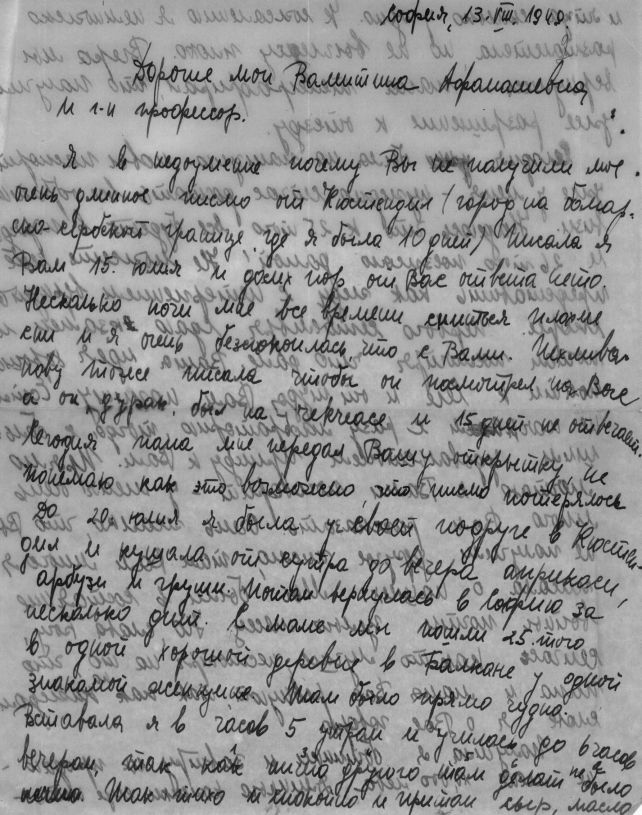 София, 13. VIII. 1949.
Дорогие мои Валитина Афанасиевна,
и г-н професcор.
Я в недоумение почему Вы не получили мое
очень длинное писмо от Кюстендил (город на болгар-
ско-сербской границе, где я была 10 дней) Писала я
Вам 15. юлия и до сих пор от Вас ответа нето.
Несколько ночи мне все времени сниться плохие
сни и я очень безспокоилась что с Вами.
нову тоже писала чтобы он посмотрел на Вас
а он, дурак, был на и 15 дней не отвечает.
Сегодня папа мне передал Вашу открытку не
понимаю как это возможено, что писмо потерялось
До 20. юлия я была у своей подруге в Кюстен-
дил и кушала от сутра до вечера априкаси,
арбузи и груши. Потом вернулась в Софию за
несколько дней. С маме мы пошли 25 того
в одной хорошой деревне в Балкане у одной
знакомой женщине. Там было прямо чудна.
Вставала я в часов 5 утрам и училась до 6 часов
вечерам, так как ничто другого там делат не было
Так тихо и спокойно и притом сыр, масло